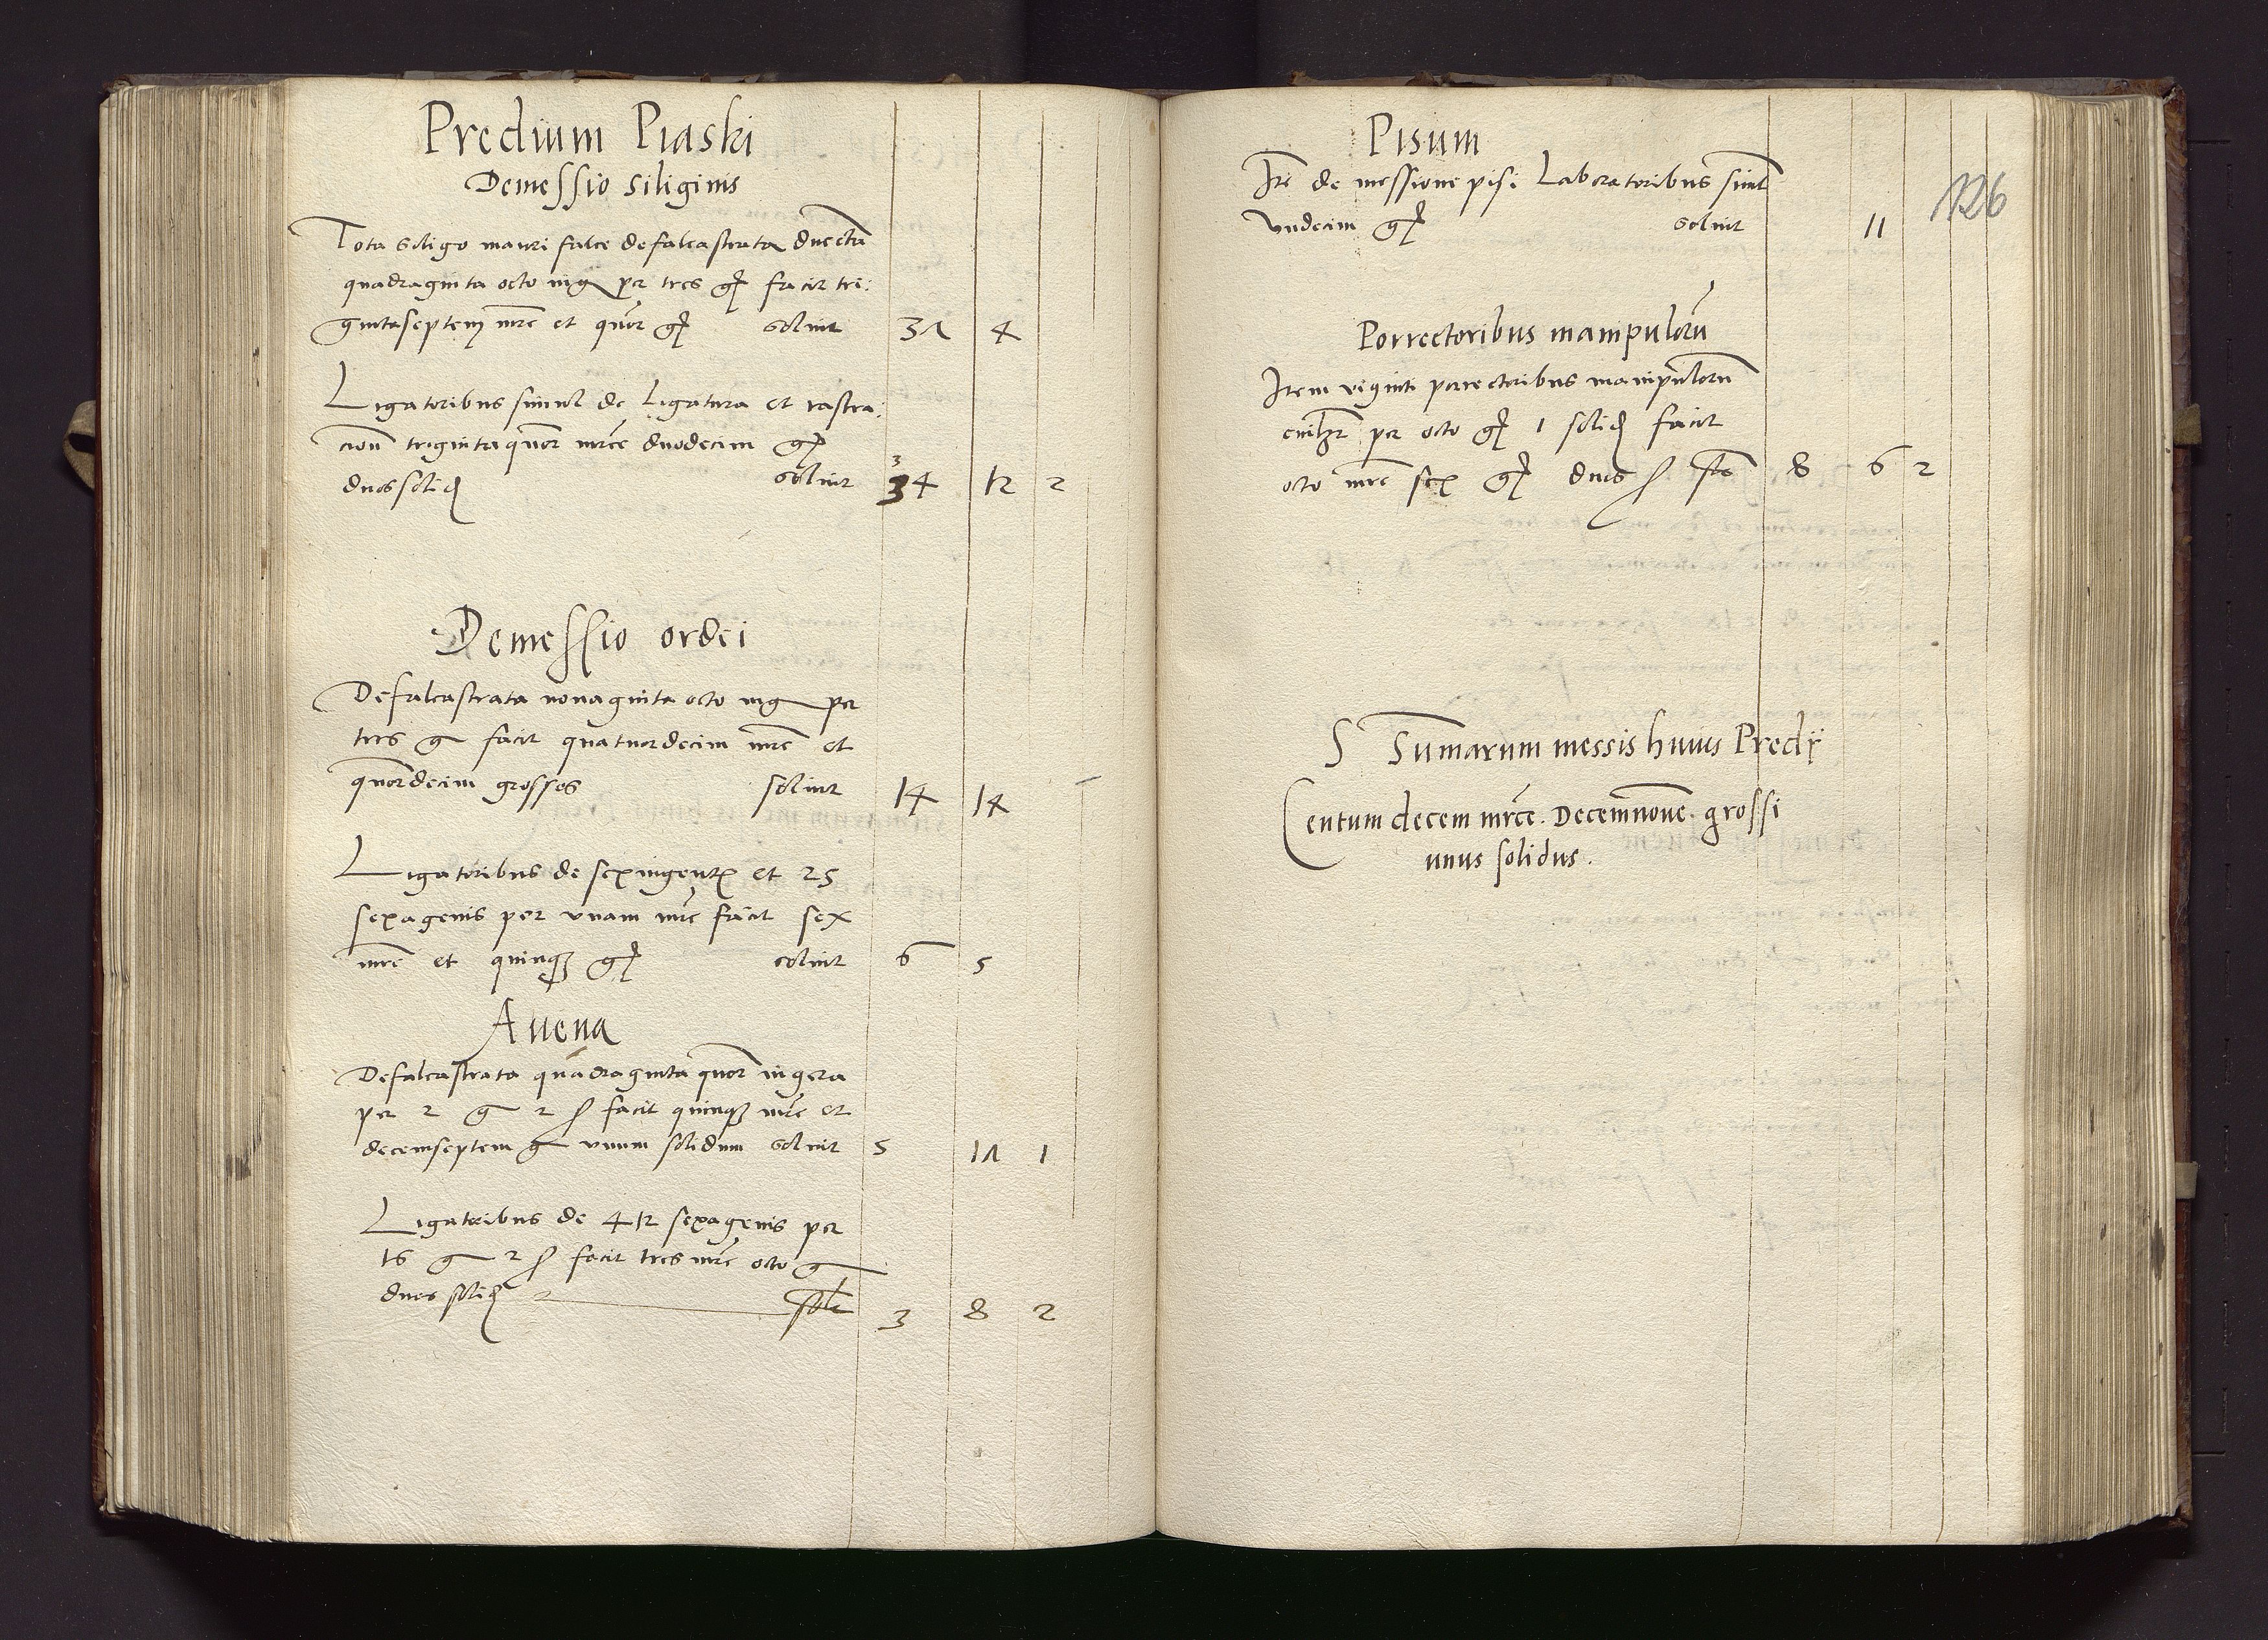 Predium Piaski
Demessio siliginis
Tota siligo mauri falce defalcastrata ducenta
quadraginta octo iug per tres g facit tri:
gintaseptem mrc et quor g soluit 37 4
Ligatoribus simul de Ligatura et rastra:
cion triginta quor mrce duodecim g
duos solid soluit 34 12 2
3
Demessio ordei
Defalcastrata nonaginta octo iug per
tres g facit quatuordecim mrc et
quordecim grossos soluit 14 14
Ligatoribus de sexingent et 25
sexagenis per vnam mrc facit sex
mrc et quinq g soluit 6 5
Auena
Defalcastrata quadraginta quor iugera
per 2 g 2 s facit quinq mrc et
decemseptem g vnum solidum soluit 5 17 1
Ligatoribus de 412 sexagenis per
16 g 2 s facit tres mrc octo g
duos solid sol 3 8 2
Pisum
Ite de messione pisi Laboratoribus siml
vndecim g soluit 11
126
Porrectoribus manipuloru
Item viginti porrectoribus manipuloru
per octo g 1 solid facit
octo mrc sex g duos s 8 6 2
S Sumarum messis huius Predij
Centum decem mrce. Decemnoue. grossi
unus solidus.